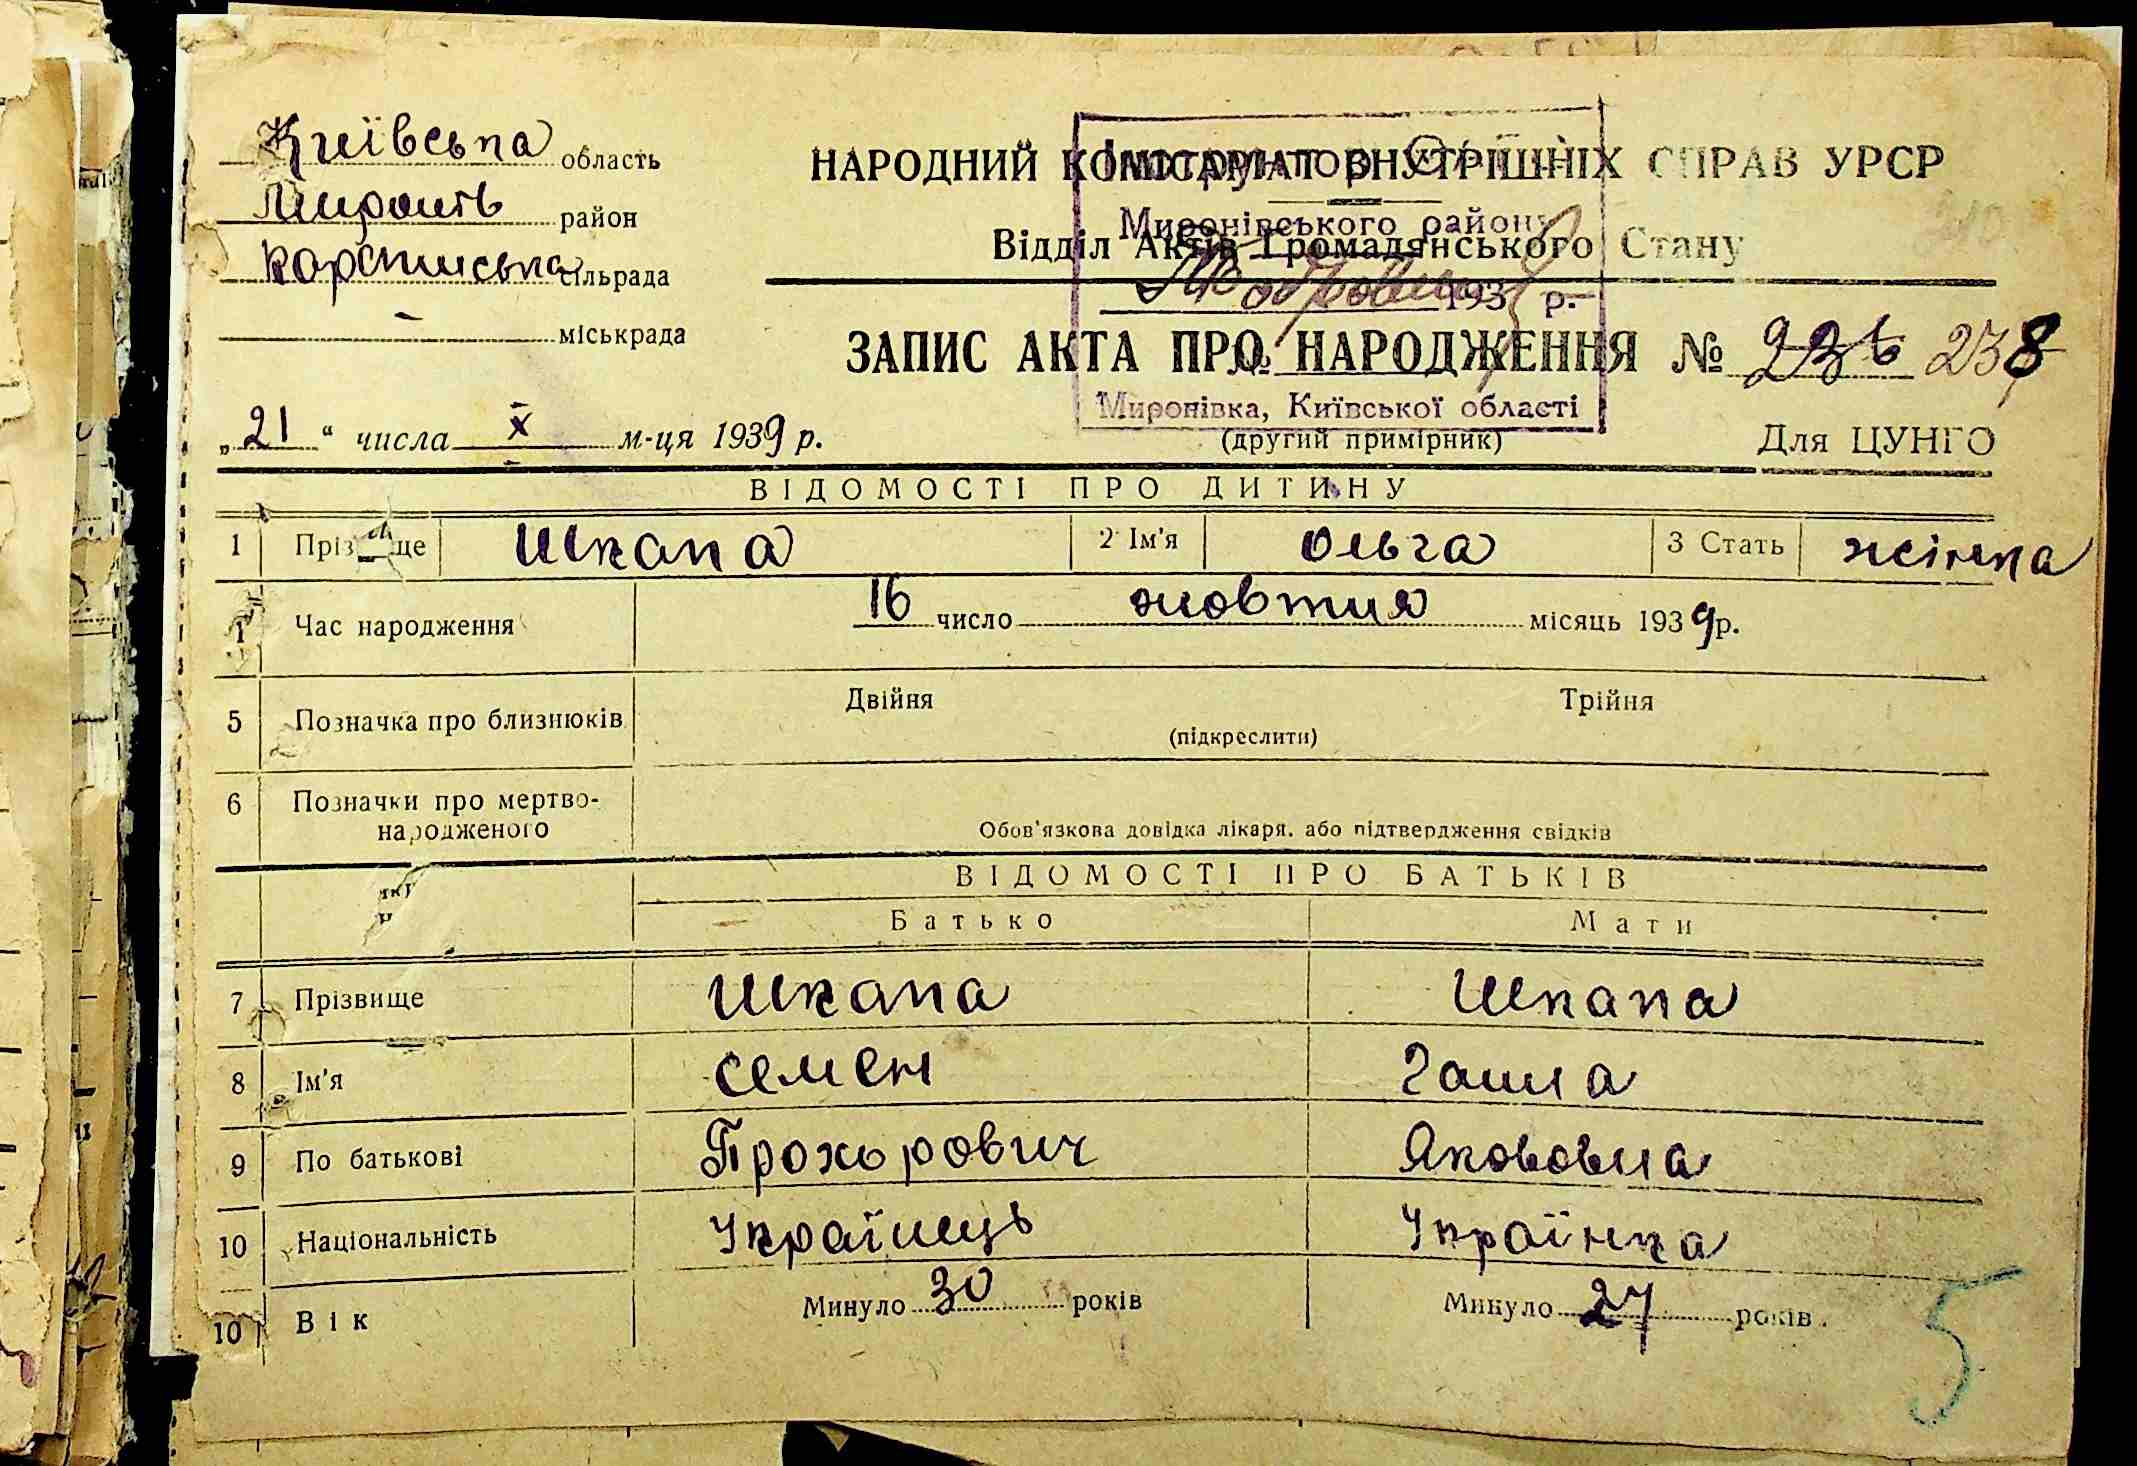 Київська область
Миронів район
Караписька сільрада
— міськрада
НАРОДНИЙ КОМІСАРІАТ ВНУТРІШНІХ СПРАВ УРСР
Відділ Актів Громадянського Стану
Миронівського району
193 р.
№
Миронівка, Київської області
ЗАПИС АКТА ПРО НАРОДЖЕННЯ № 236 238
„21“ числа X м-ця 1939 р.
(другий примірник)
Для ЦУНГО
ВІДОМОСТІ ПРО ДИТИНУ
1 Прізвище Шкапа 2 Ім'я Ольга 3 Стать жінка
Час народження 16 число жовтня місяць 1939 р.
5 Позначка про близнюків Двійня Трійня
(підкреслити)
6 Позначки про мертво-
народженого
Обов'язкова довідка лікаря, або підтвердження свідків
ВІДОМОСТІ ПРО БАТЬКІВ
Батько Мати
7 Прізвище Шкапа Шкапа
8 Ім'я Семен Ганна
9 По батькові Прохорович Якововна
10 Національність Українець Українка
10 Вік Минуло 30 років Минуло 27 років.
5